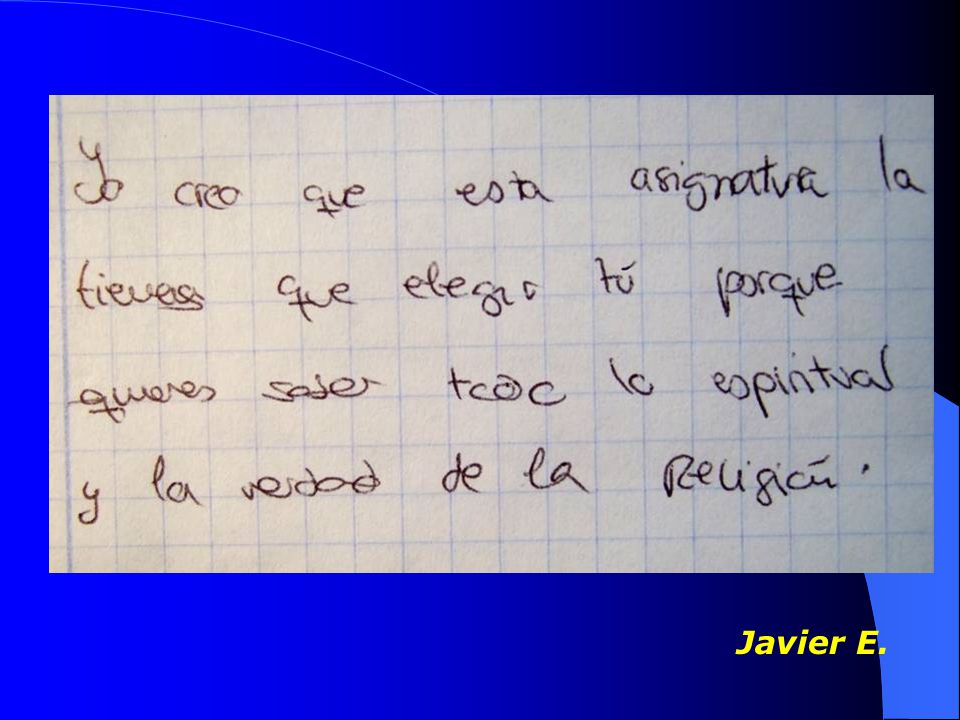 Yo creo que esta asignatura la
tienes que elegir tú porque
quieres saber todo lo espiritual
y la verdad de la Religión.
Javier E.